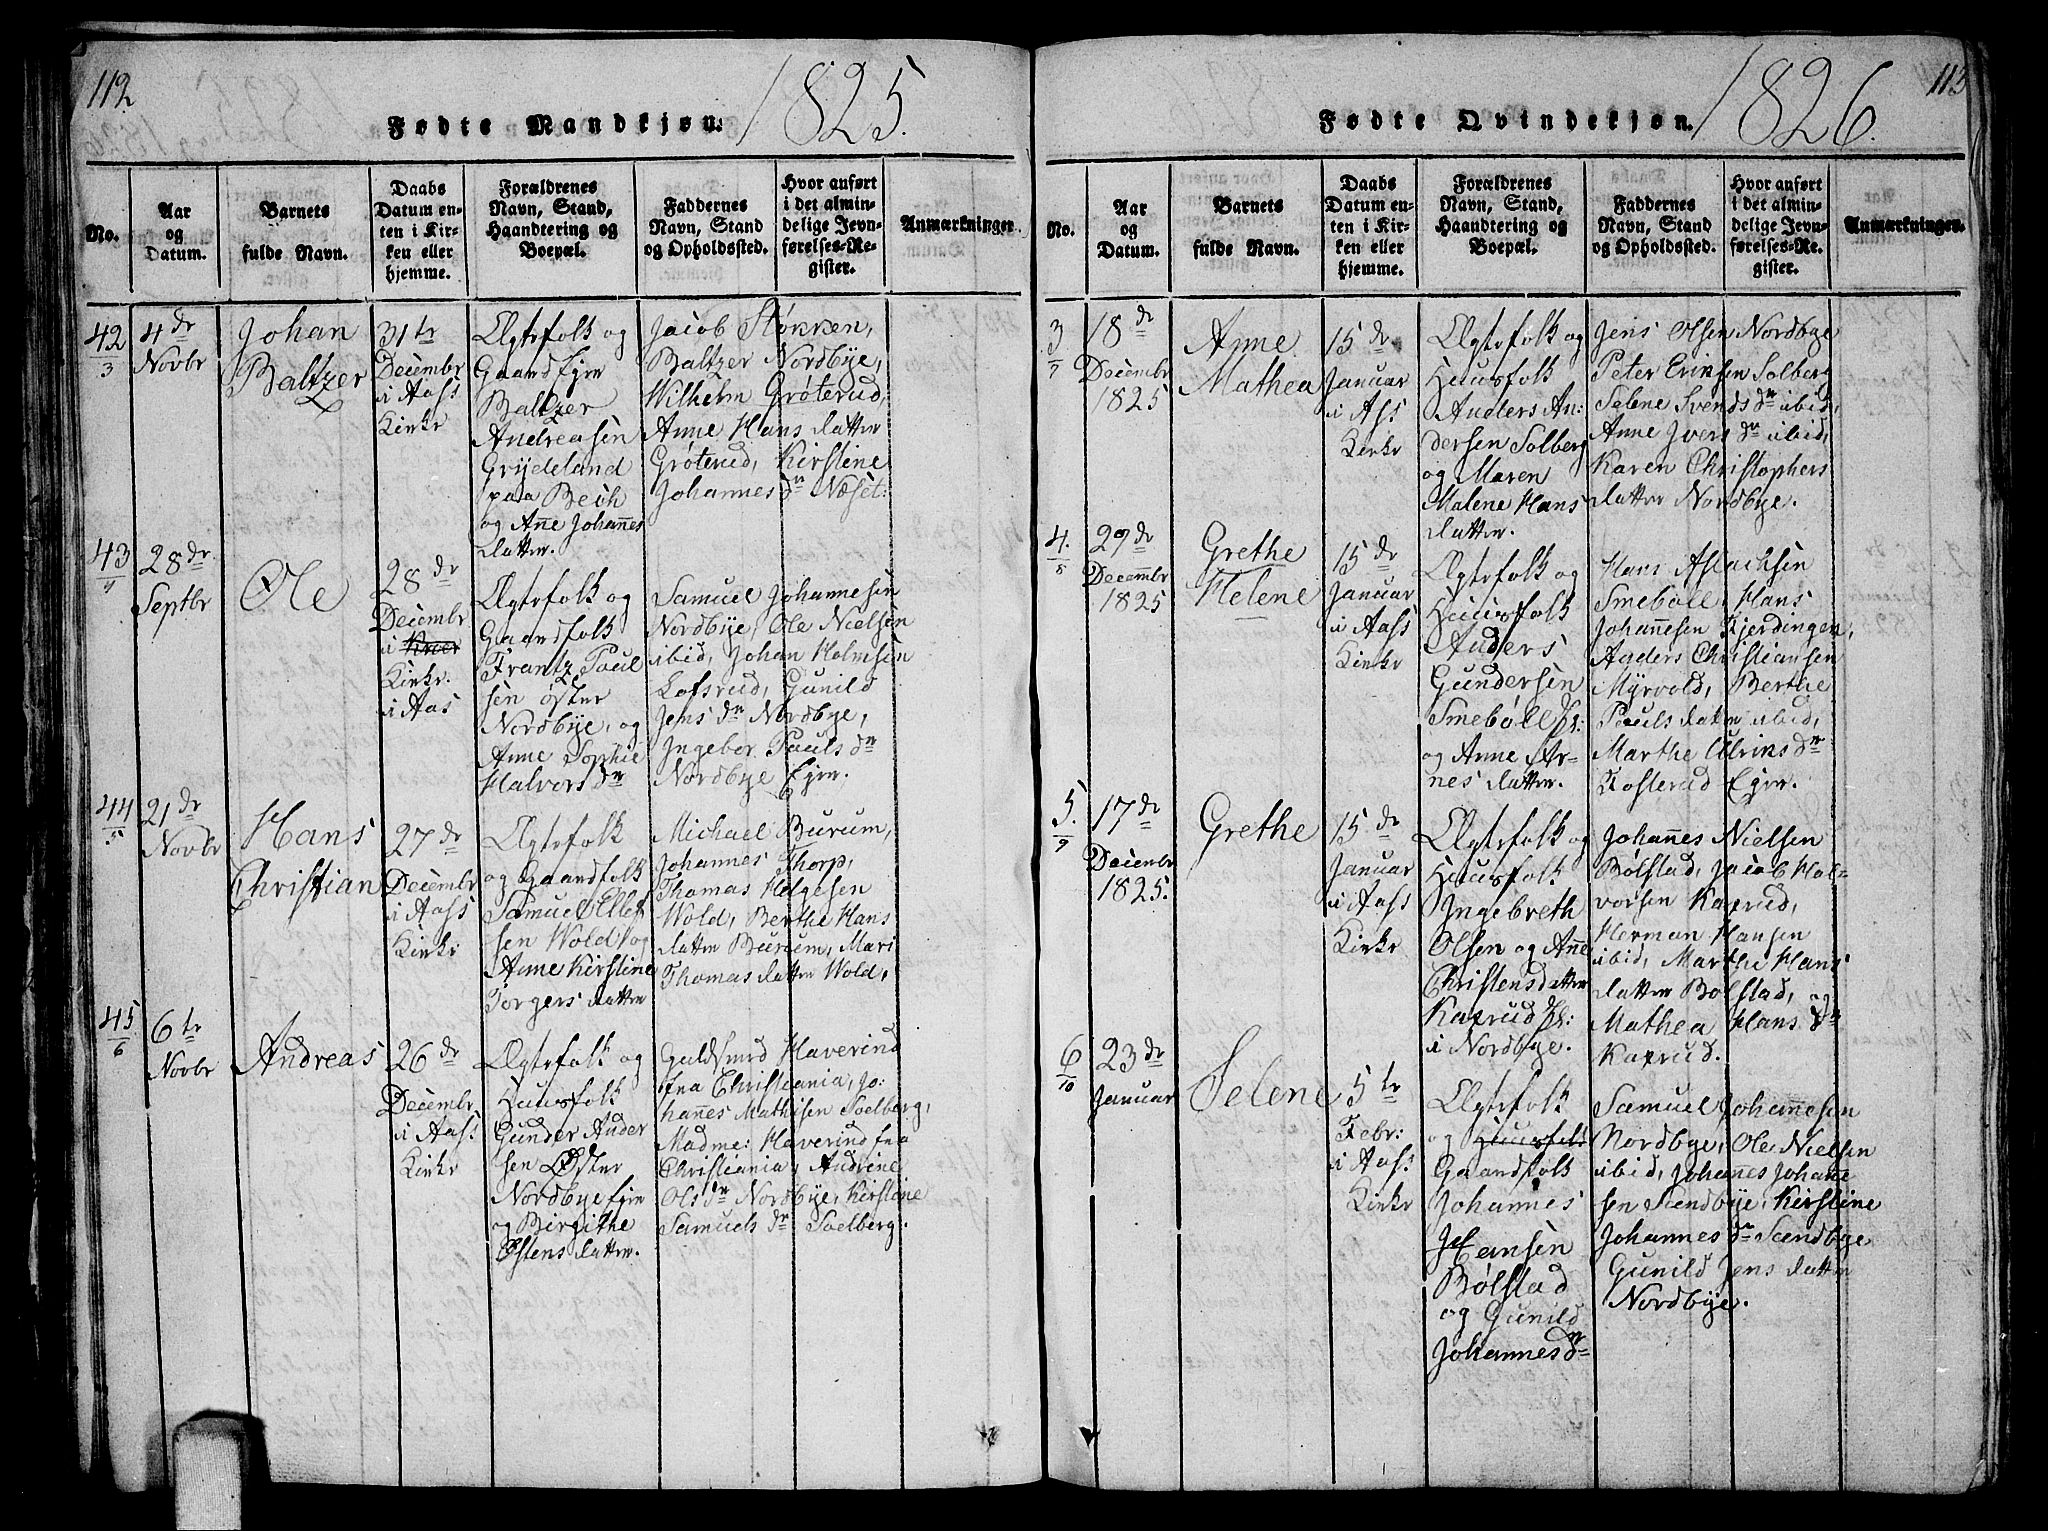 112
Fødte Mandkjøn. 1825.
No.
Aar
og
Datum.
Barnets
fulde Navn.
Daabs
Datum en-
ten i Kir-
ken eller
hjemme.
Forældrenes
Navn, Stand,
Haandtering og
Boepæl.
Faddernes
Navn, Stand
og Opholdssted.
Hvor anført
i det almin-
delige Jevn-
førelses-Re-
gister.
Anmærkninger.
42
3
4de
Novbr
Johan
Baltzer
31te
Decembr
i Aass
Kirke
Ægtefolk og
Gaard Ejere
Baltzer
Andreasen
Grydeland
paa Bech
og Anne Johannes
datter.
Jacob Støkken,
Baltzer Nordbye,
Wilhelm Grøterud,
Anne Hans datter
Grøterud, Kirstine
Johannes dr Næset:
43
4
28de
Septbr
Ole
28de
Decembr
i
Kirke.
i Aas
Ægtefolk og
Gaardfolk
Frantz Paul
sen øster
Nordbye, og
Anne Sophie
Halvors dr
Samuel Johannesen
Nordbye, Ole Nielsen
ibid, Johan Holmsen
Lofsrud, Gunild
Jens dr Nordbye,
Ingebor Pauls dr
Nordbye Ejer.
44
5
21de
Novbr
Hans
Christian
27de
Decembr
i Aass
Kirke
Ægtefolk
og Gaardfolk
Samuel Ellef
sen Wold og
Anne Kirstine
Torgers datter
Michael Burum,
Johannes Thorp,
Thomas Helgesen
Wold, Berthe Hans
datter Burum, Mari
Thomas datter Wold,
45
6
6te
Novbr
Andreas
26de
Decembr
i Aass
Kirke
Ægtefolk og
Huusfolk
Gunder Ander
sen Øster
Nordbye Ejer
og Birgithe
Østens datter.
Guldsmed Haverind
fra Christiania, Jo:
hannes Mathisen Soelberg,
Madme: Haverind fra
Christiania, Andrine
Ols dr Nordbye, Kirstine
Samuels dr Soelberg.
113
Fødte Qvindekjøn. 1826.
No.
Aar
og
Datum.
Barnets
fulde Navn.
Daabs
Datum en-
ten i Kir-
ken eller
hjemme.
Forældrenes
Navn, Stand,
Haandtering og
Boepæl.
Faddernes
Navn, Stand
og Opholdssted.
Hvor anført
i det almin-
delige Jevn-
førelses-Re-
gister.
Anmærkninger.
3
7
18de
Decembr
1825
Anne
Mathea
15de
Januar
i Aass
Kirke
Ægtefolk og
Huusfolk
Anders An:
dersen Solberg
og Maren
Malene Hans
datter.
Jens Olsen Nordbye
Peter Eriksen Solberg
Selene Svends dr ibid,
Anne Ivers dr ibid,
Karen Christophers
datter Nordbye.
4.
8
29de
Decembr
1825
Grethe
Helene
15de
Januar
i Aass
Kirke
Ægtefolk og
Huusfolk
Anders
Gundersen
Smebøll Ejr:
og Anne Ar-
nes datter.
Hans Aslachsen
Smebøll, Hans
Johannesen Kjerdingen,
Anders Christiansen
Myrvold, Berthe
Pauls datter ibid,
Marthe Ulriks dr
Fosterud Ejer.
5.
9
17de
Decembr
1825.
Grethe
15de
Januar
i Aass
Kirke
Ægtefolk og
Huusfolk
Ingebreth
Olsen og Anne
Christensdatter
Kaxrud Ejr:
i Nordbye.
Johannes Nielsen
Bølstad, Jacob Hal-
vorsen Kaxrud,
Herman Hansen
ibid, Marthe Hans
datter Bølstad, og
Mathea Hans dr
Kaxrud.
6
10
23de
Januar
Selene
5te
Febr:
i Aass
Kirke
Ægtefolk
og Huusfolk
Gaardfolk
Johannes
Hansen
Bølstad
og Gunild
Johannesdr
Samuel Johannesen
Nordbye, Ole Nielsen
ibid, Johannes Johanne
sen Sundbye, Kirstine
Johannes dr Sundbye
Gunild Jens datter
Nordbye.